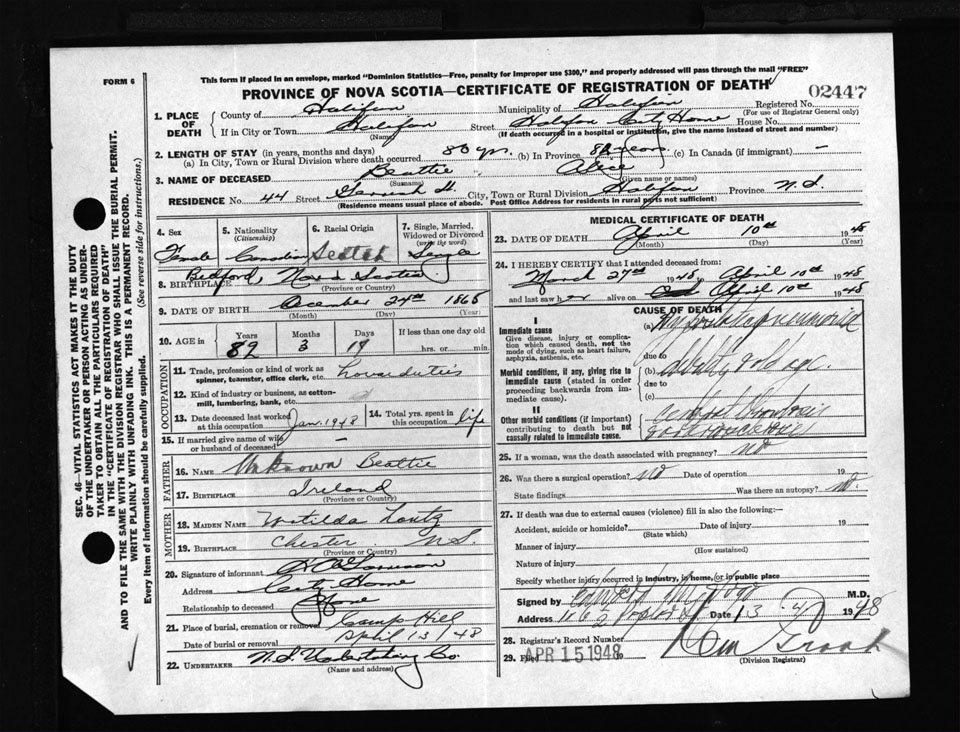 FORM 6
This form if placed in an envelope, marked "Dominion Statistics—Free, penalty for improper use $300," and properly addressed will pass through the mail "FREE"
PROVINCE OF NOVA SCOTIA—CERTIFICATE OF REGISTRATION OF DEATH
02447
1. PLACE OF DEATH
County of Halifax Municipality of Halifax Registered No.
(For use of Registrar General only)
If in City or Town Halifax Street Halifax City Home House No.
(Name) (If death occurred in a hospital or institution, give the name instead of street and number)
2. LENGTH OF STAY (in years, months and days)
(a) In City, Town or Rural Division where death occurred 80 yrs. (b) In Province 82 years (c) In Canada (if immigrant) —
3. NAME OF DECEASED Beattie Alice
(Surname) (Given name or names)
RESIDENCE No. 44 Street St. City, Town or Rural Division Halifax Province N.S.
(Residence means usual place of abode. Post Office Address for residents in rural parts not sufficient)
4. Sex Female
5. Nationality (Citizenship) Canadian
6. Racial Origin Scotch
7. Single, Married, Widowed or Divorced (write the word) Single
8. BIRTHPLACE Bedford Nova Scotia
(Province or Country)
9. DATE OF BIRTH December 24th 1865
(Month) (Day) (Year)
10. AGE in Years Months Days If less than one day old
82 3 17 hrs. or min.
OCCUPATION
11. Trade, profession or kind of work as spinner, teamster, office clerk, etc. housduties
12. Kind of industry or business, as cotton-mill, lumbering, bank, etc.
13. Date deceased last worked at this occupation Jan. 1948
14. Total yrs. spent in this occupation life
15. If married give name of wife or husband of deceased —
FATHER
16. NAME Unknown Beattie
17. BIRTHPLACE Ireland
(Province or Country)
MOTHER
18. MAIDEN NAME Matilda Lantz
19. BIRTHPLACE Chester N.S.
(Province or Country)
20. Signature of informant
Address City Home
Relationship to deceased None
21. Place of burial, cremation or removal Camp Hill
Date of burial or removal April 13/48
22. UNDERTAKER N.S. Undertaking Co.
(Name and address)
MEDICAL CERTIFICATE OF DEATH
23. DATE OF DEATH April 10th 1948
(Month) (Day) (Year)
24. I HEREBY CERTIFY that I attended deceased from:
March 27th 1948, to April 10th 1948
and last saw her alive on April 10th 1948
CAUSE OF DEATH
I
Immediate cause
Give disease, injury or complication which caused death, not the mode of dying, such as heart failure, asphyxia, asthenia, etc.
(a) Hypostatic pneumonia
due to
Morbid conditions, if any, giving rise to immediate cause (stated in order proceeding backwards from immediate cause).
(b) debility & old age.
due to
(c)
II
Other morbid conditions (if important) contributing to death but not causally related to immediate cause.
Cerebral thrombosis
arteriosclerosis
25. If a woman, was the death associated with pregnancy? no
26. Was there a surgical operation? no Date of operation 19
State findings Was there an autopsy? no.
27. If death was due to external causes (violence) fill in also the following:—
Accident, suicide or homicide? Date of injury 19
(State which)
Manner of injury
(How sustained)
Nature of injury
Specify whether injury occurred in industry, in home, or in public place
Signed by M.D.
Address Date 13 1948
28. Registrar's Record Number
29. Filed APR 15 1948 19
(Division Registrar)
SEC. 46—VITAL STATISTICS ACT MAKES IT THE DUTY
OF THE UNDERTAKER OR PERSON ACTING AS UNDER-
TAKER TO OBTAIN ALL THE PARTICULARS REQUIRED
IN THE "CERTIFICATE OF REGISTRATION OF DEATH"
AND TO FILE THE SAME WITH THE DIVISION REGISTRAR WHO SHALL ISSUE THE BURIAL PERMIT.
WRITE PLAINLY WITH UNFADING INK. THIS IS A PERMANENT RECORD.
Every item of information should be carefully supplied. (See reverse side for instructions.)